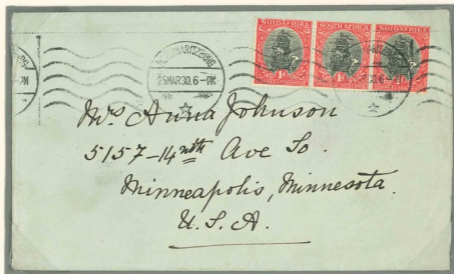 SUIDAFRIKA SOUTH AFRICA SUIDAFRIKA
1D 1D 1D
25 MAR 30. 6 - PM
Mrs Anna Johnson
5157-14th Ave So.
Minneapolis, Minnesota.
U.S.A.